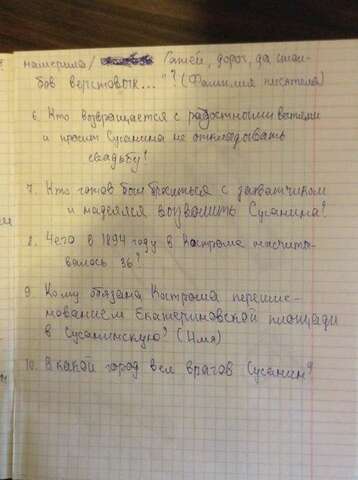 намерила / Гатей, дорог, да стол-
бов верстовых..."? (Фамилия писателя)
6. Кто возвращается с радостными вестями
и просит Сусанина не откладывать
свадьбу?
7. Кто готов был биться с захватчиком
и надеялся вызволить Сусанина?
8. Чего в 1894 году в Костроме насчиты-
валось 36?
9. Кому обязана Кострома переиме-
нованием Екатериновской площади
в Сусанинскую? (Имя)
10. В какой город вёл врагов Сусанин?